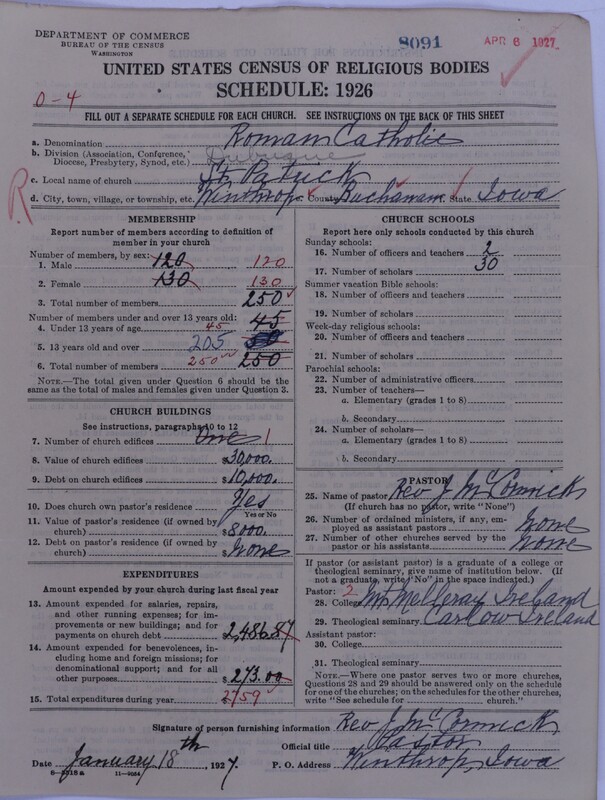 DEPARTMENT OF COMMERCE
BUREAU OF THE CENSUS
WASHINGTON
8091
APR 6 1927
UNITED STATES CENSUS OF RELIGIOUS BODIES
SCHEDULE: 1926
0-4
FILL OUT A SEPARATE SCHEDULE FOR EACH CHURCH. SEE INSTRUCTIONS ON THE BACK OF THIS SHEET
a. Denomination Roman Catholic
b. Division (Association, Conference, Diocese, Presbytery, Synod, etc.) Dubuque
c. Local name of church St Patrick
R
d. City, town, village, or township, etc. Winthrop County Buchanan State Iowa
MEMBERSHIP
Report number of members according to definition of member in your church
Number of members, by sex:
1. Male 120 120
2. Female 130 130
3. Total number of members 250
Number of members under and over 13 years old:
4. Under 13 years of age 45 45
5. 13 years old and over 205
6. Total number of members 250 250
NOTE.—The total given under Question 6 should be the same as the total of males and females given under Question 3.
CHURCH BUILDINGS
See instructions, paragraphs 10 to 12
7. Number of church edifices One 1
8. Value of church edifices $30,000.
9. Debt on church edifices $10,000.
10. Does church own pastor's residence? Yes
Yes or No
11. Value of pastor's residence (if owned by church) $8000.
12. Debt on pastor's residence (if owned by church) $None
EXPENDITURES
Amount expended by your church during last fiscal year
13. Amount expended for salaries, repairs, and other running expenses; for improvements or new buildings; and for payments on church debt $2,486.87
14. Amount expended for benevolences, including home and foreign missions; for denominational support; and for all other purposes $273.00
15. Total expenditures during year 2759
CHURCH SCHOOLS
Report here only schools conducted by this church
Sunday schools:
16. Number of officers and teachers 2
17. Number of scholars 30
Summer vacation Bible schools:
18. Number of officers and teachers
19. Number of scholars
Week-day religious schools:
20. Number of officers and teachers
21. Number of scholars
Parochial schools:
22. Number of administrative officers
23. Number of teachers—
a. Elementary (grades 1 to 8)
b. Secondary
24. Number of scholars—
a. Elementary (grades 1 to 8)
b. Secondary
PASTOR
25. Name of pastor Rev J McCormick
(If church has no pastor, write "None")
26. Number of ordained ministers, if any, employed as assistant pastors None
27. Number of other churches served by the pastor or his assistants None
If pastor (or assistant pastor) is a graduate of a college or theological seminary, give name of institution below. (If not a graduate, write "No" in the space indicated.)
Pastor: 2
28. College Mt Melleray Ireland
29. Theological seminary Carlow Ireland
Assistant pastor:
30. College
31. Theological seminary
NOTE.—Where one pastor serves two or more churches, Questions 28 and 29 should be answered only on the schedule for one of the churches; on the schedules for the other churches, write "See schedule for church."
Signature of person furnishing information Rev J McCormick
Official title Pastor
Date January 18th, 1927. P. O. Address Winthrop, Iowa